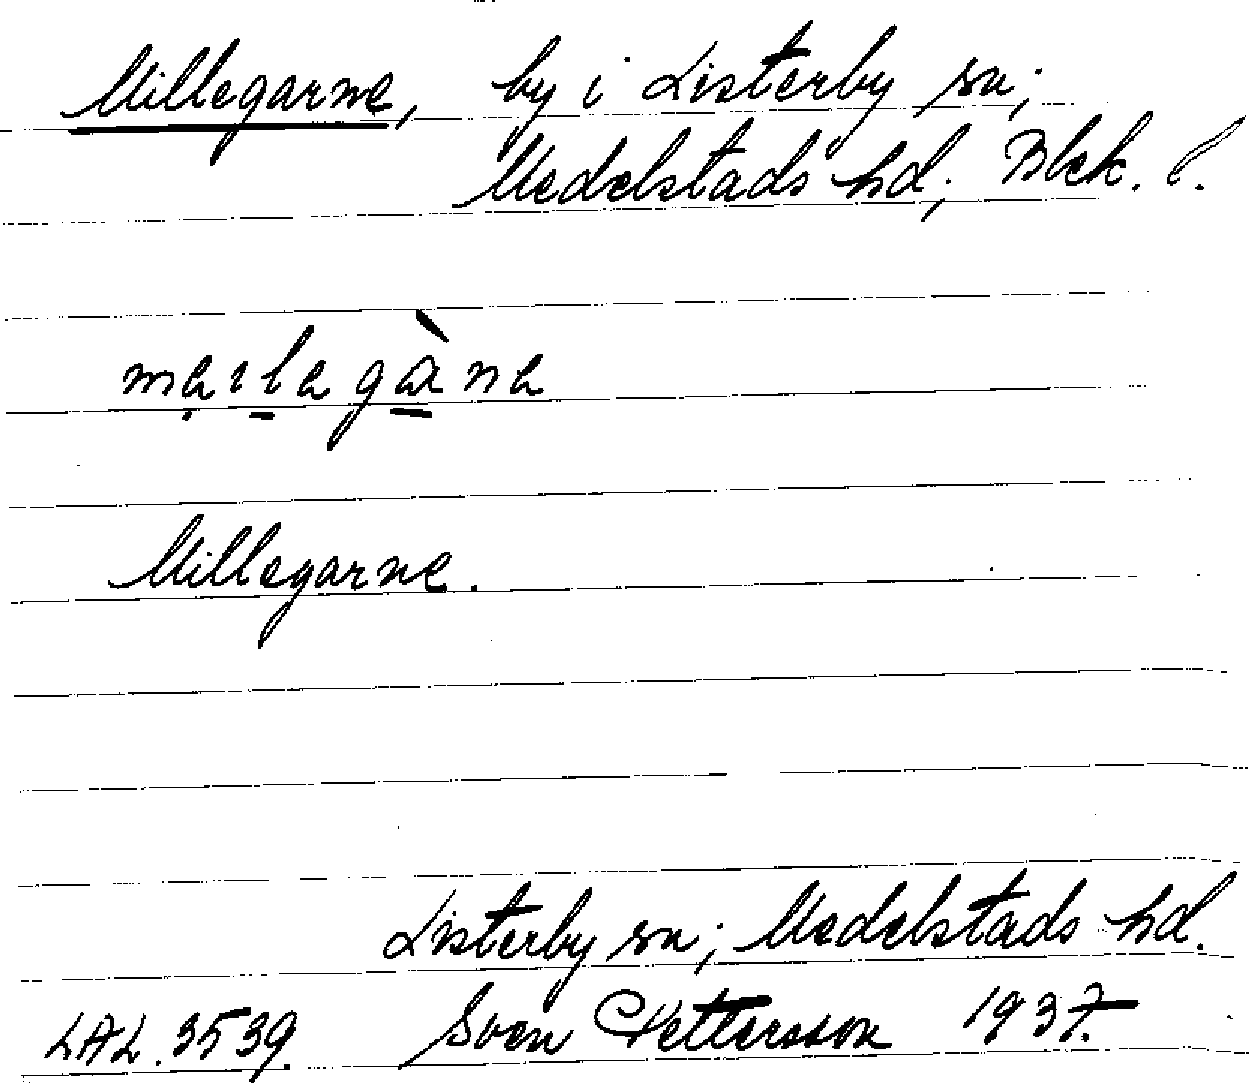 Millegarne, by i Listerby sn;
Medelstads hd; Blek. l.
Millegarne.
Listerby sn; Medelstads hd.
LAL. 3539. Sven Pettersson 1937.